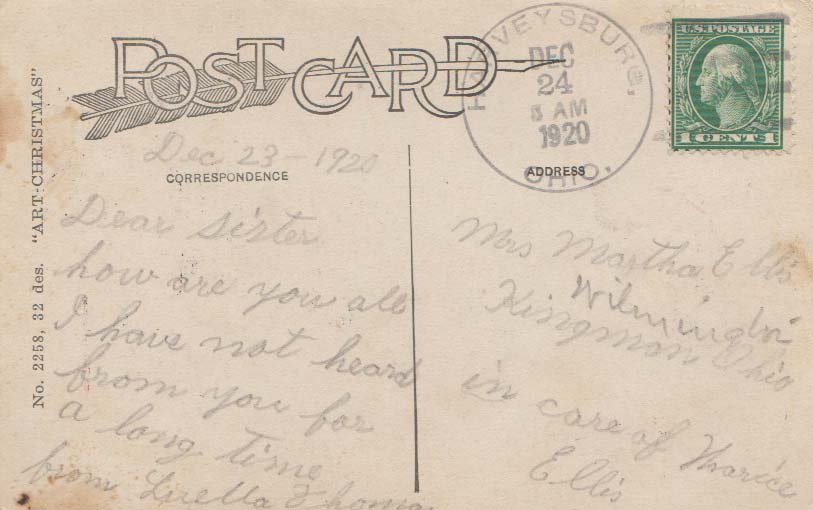 POST CARD
HARVEYSBURG,
DEC
24
5 AM
1920
OHIO.
U.S. POSTAGE
1 CENTS 1
Dec 23 - 1920
CORRESPONDENCE
ADDRESS
No. 2258, 32 des. "ART-CHRISTMAS"
Dear sister
how are you all
I have not heard
from you for
a long time
from Luella Thomas
Mrs Martha Ellis
Wilmington
Kingman Ohio
in care of
Ellis